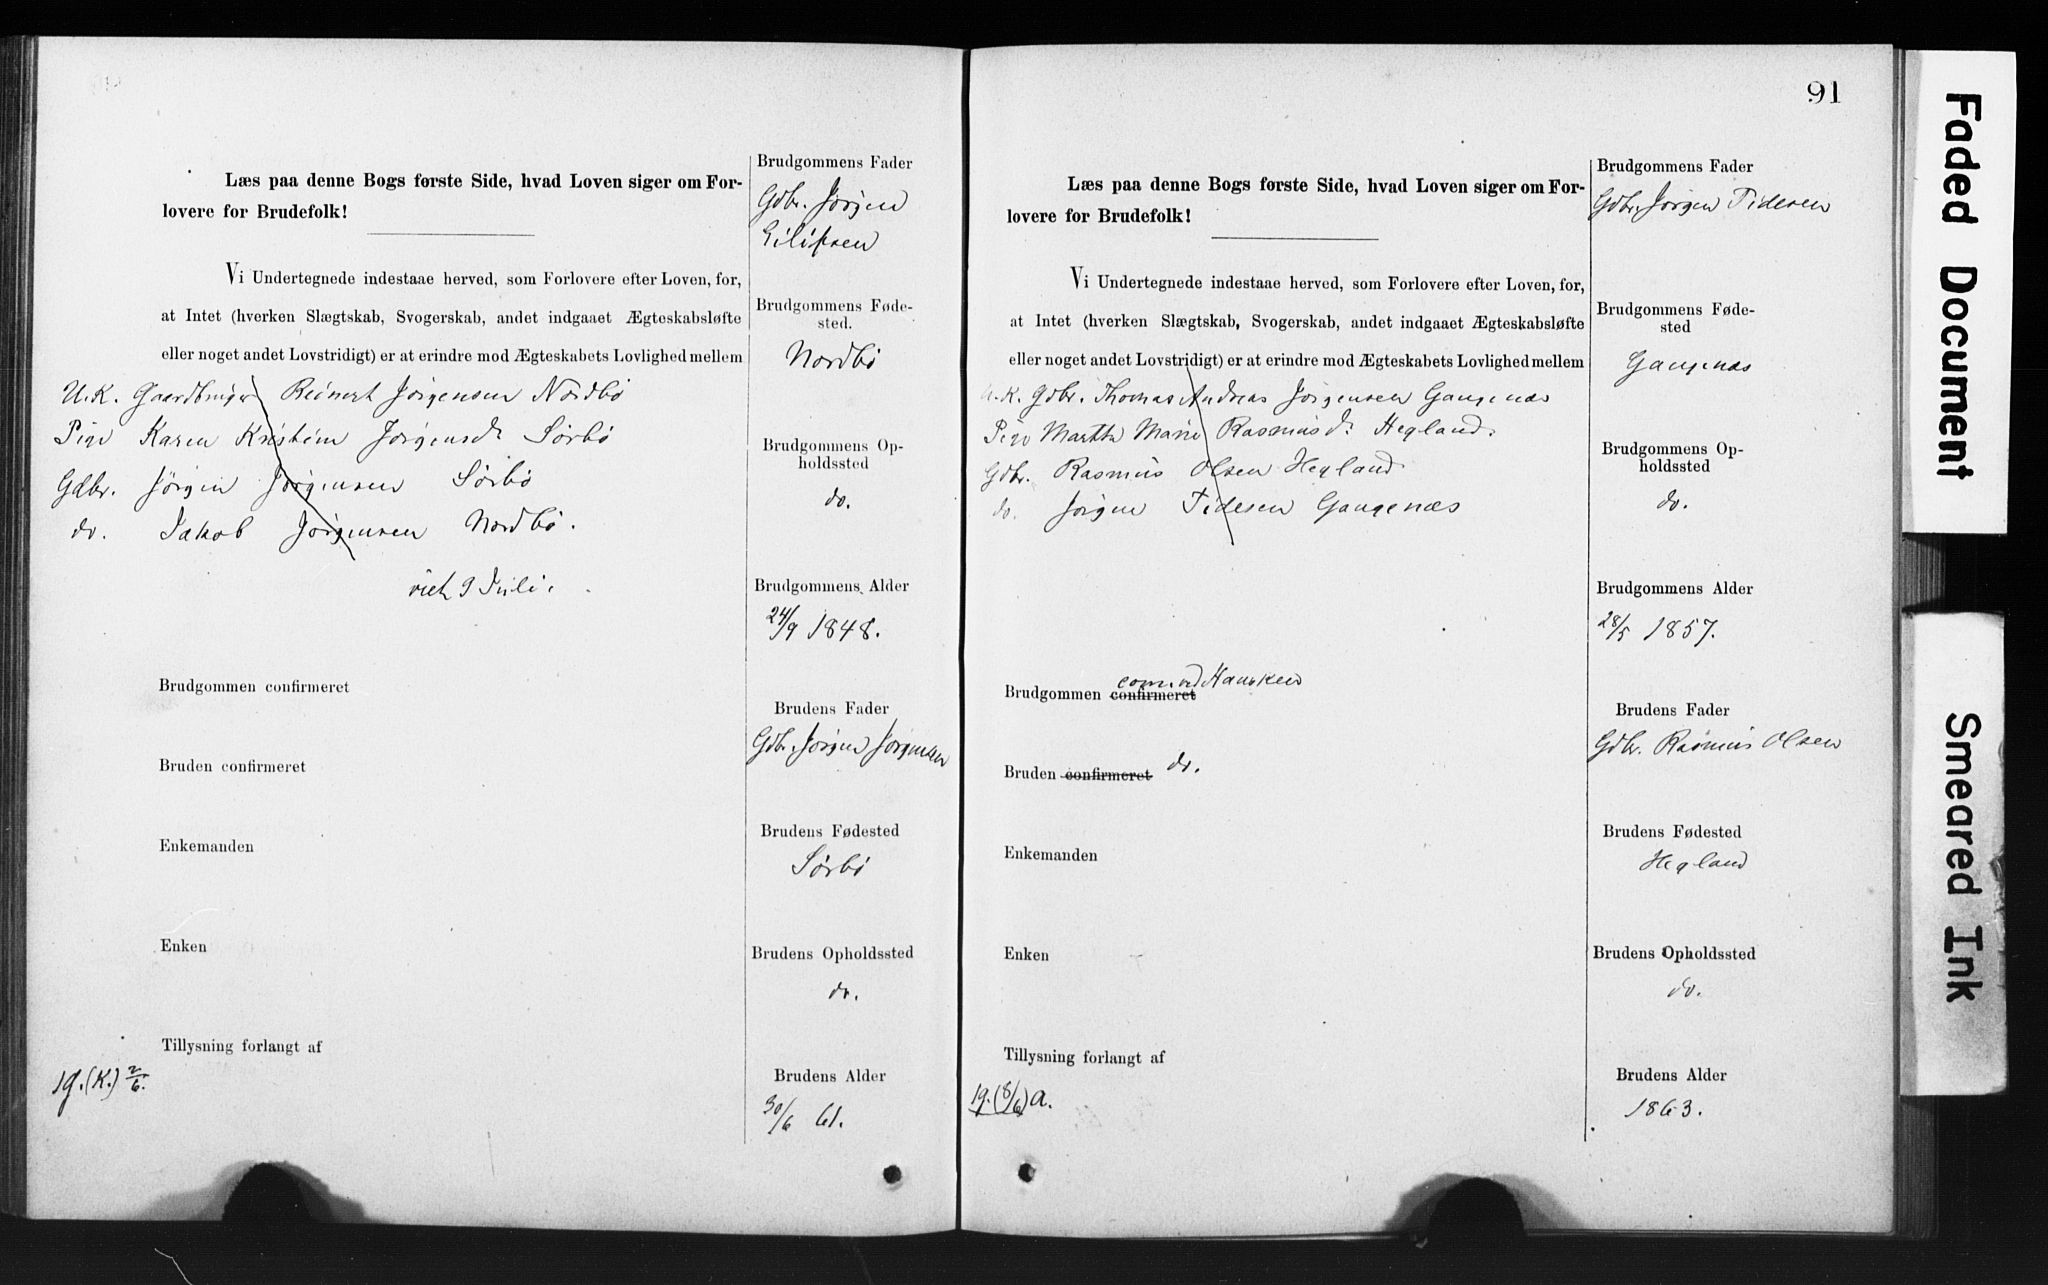 Læs paa denne Bogs første Side, hvad Loven siger om For-
lovere for Brudefolk!
Vi Undertegnede indestaae herved, som Forlovere efter Loven, for,
at Intet (hverken Slægtskab, Svogerskab, andet indgaaet Ægteskabsløfte
eller noget andet Lovstridigt) er at erindre mod Ægteskabets Lovlighed mellem
U.K. Gaardbruger Reinert Jørgensen Nordbø
Pige Karen Kristine Jørgensdr. Sørbø
Gdbr. Jørgen Jørgensen Sørbø
do. Jakob Jørgensen Nordbø.
viet 9 Juli.
Brudgommen confirmeret
Bruden confirmeret
Enkemanden
Enken
Tillysning forlangt af
19.(K.) 2/6.
Brudgommens Fader
Gdbr. Jørgen
Eilifsen
BrudgommensFøde-
sted.
Nordbø
Brudgommens Op-
holdssted
do.
Brudgommens Alder
24/9 1848.
Brudens Fader
Gdbr. Jørgen Jørgensen
Brudens Fødested
Sørbø
Brudens Opholdssted
do.
Brudens Alder
30/6 61.
91
Læs paa denne Bogs første Side, hvad Loven siger om For-
lovere for Brudefolk!
Vi Undertegnede indestaae herved, som Forlovere efter Loven, for,
at Intet (hverken Slægtskab, Svogerskab, andet indgaaet Ægteskabsløfte
eller noget andet Lovstridigt) er at erindre mod Ægteskabets Lovlighed mellem
U.K. Gdbr. Thomas Andreas Jørgensen Gangenæs
Pige Martha Marie Rasmusdr. Hegland.
Gdbr. Rasmus Olsen Hegland
do. Jørgen Tidesen Gangenæs
Brudgommen confirmeret
Bruden confirmeret do.
Enkemanden
Enken
Tillysning forlangt af
19.(8/6) a.
Brudgommens Fader
Gdbr. Jørgen Tidesen
Brudgommens Føde-
sted
Gangenæs
Brudgommens Op-
holdssted
do.
Brudgommens Alder
28/5 1857.
Brudens Fader
Gdbr. Rasmus Olsen
Brudens Fødested
Hegland
Brudens Opholdssted
do.
Brudens Alder
1863.
Faded Document
Smeared Ink